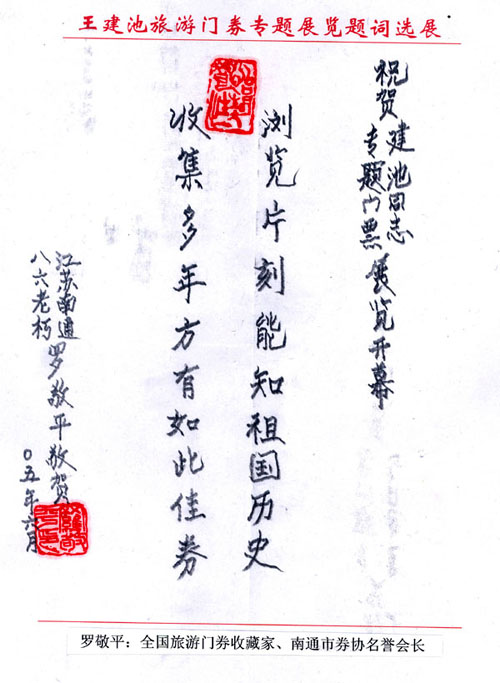 王建池旅游门券专题展览题词选展
祝贺建池同志
专题门票展览开幕
浏览片刻能知祖国历史
收集多年方有如此佳券
江苏南通
八六老朽罗敬平敬贺
〇五年六月
罗敬平：全国旅游门券收藏家、南通市券协名誉会长